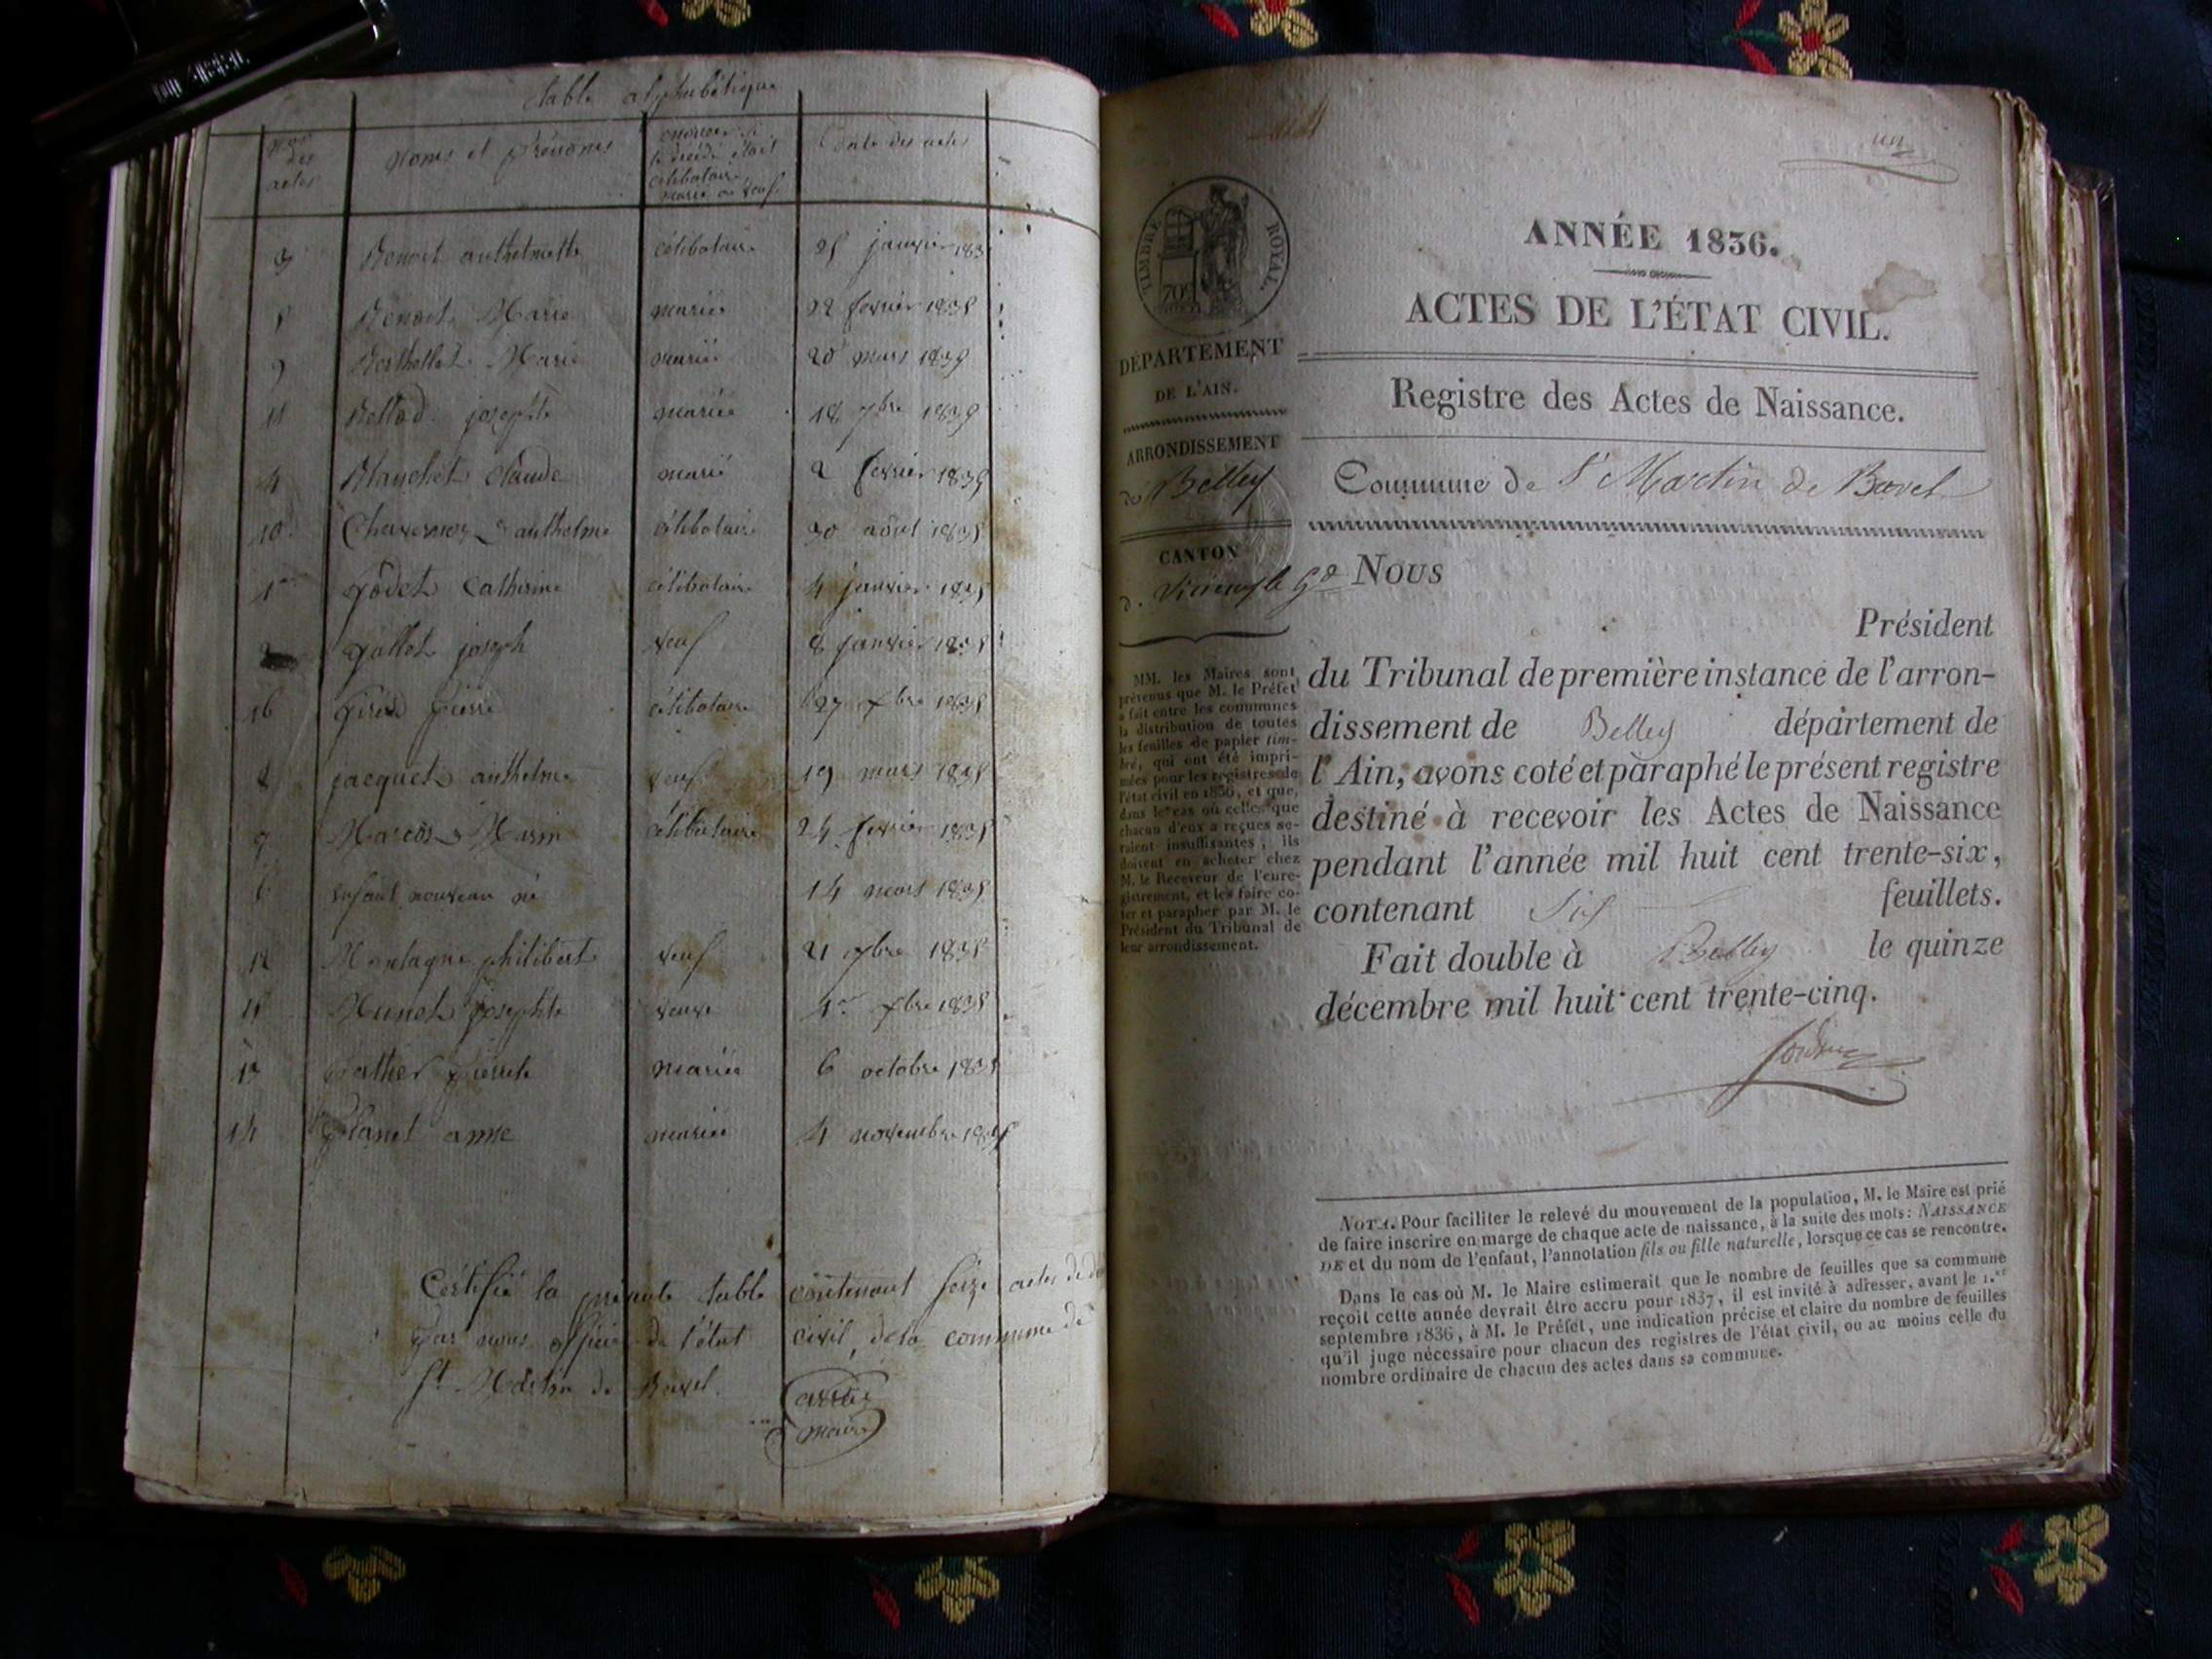 table alphabétique
nos des actes
noms et prénoms
énoncer si le décédé était célibataire marié ou veuf
Date des actes
3 Benoit anthelmette célibataire 25 janvier 183
5 Benoit Marie mariée 22 fevrier 1835
9 Berthollet Marie mariée 20 mars 1835
11 Bellod josephte mariée 18 7bre 1835
4 Blanchet Claude marié 2 fevrier 1835
10 anthelme célibataire 30 août 1835
1er godet Catherine célibataire 4 janvier 1835
gallet joseph veuf 8 janvier 1835
16 pierre célibataire 27 xbre 1835
8 jacquet anthelme veuf 19 mars 1835
Marin célibataire 24 fevrier 1835
enfant nouveau né 14 mars 1835
12 Montagne philibert veuf 21 7bre 1835
15 Munet josephte veuve 1er xbre 1835
13 pierrette mariée 6 octobre 1835
14 anne mariée 4 novembre 1835
Certifié la présente table contenant seize actes de
par nous officier de l'état civil, de la commune de
St Martin de Bavel.
maire
un
TIMBRE ROYAL
709
ANNÉE 1836.
ACTES DE L'ÉTAT CIVIL.
DÉPARTEMENT
DE L'AIN.
ARRONDISSEMENT
de Belley
CANTON
d. Virieu le Gd
Registre des Actes de Naissance.
Commune de St Martin de Bavel
MM. les Maires sont
prévenus que M. le Préfet
a fait entre les communes
la distribution de toutes
les feuilles de papier tim-
bré, qui ont été impri-
mées pour les registres de
l'état civil en 1836, et que,
dans le cas où celles que
chacun d'eux a reçues se-
raient insuffisantes, ils
doivent en acheter chez
M. le Receveur de l'enre-
gistrement, et les faire co-
ter et parapher par M. le
Président du Tribunal de
leur arrondissement.
NOUS
Président
du Tribunal de première instance de l'arron-
dissement de Belley département de
l'Ain, avons coté et paraphé le présent registre
destiné à recevoir les Actes de Naissance
pendant l'année mil huit cent trente-six,
contenant Six feuillets.
Fait double à Belley le quinze
décembre mil huit cent trente-cinq.
NOTA. Pour faciliter le relevé du mouvement de la population, M. le Maire est prié
de faire inscrire en marge de chaque acte de naissance, à la suite des mots: NAISSANCE
DE et du nom de l'enfant, l'annotation fils ou fille naturelle, lorsque ce cas se rencontre.
Dans le cas où M. le Maire estimerait que le nombre de feuilles que sa commune
reçoit cette année devrait être accru pour 1837, il est invité à adresser, avant le 1.er
septembre 1836, à M. le Préfet, une indication précise et claire du nombre de feuilles
qu'il juge nécessaire pour chacun des registres de l'état civil, ou au moins celle du
nombre ordinaire de chacun des actes dans sa commune.